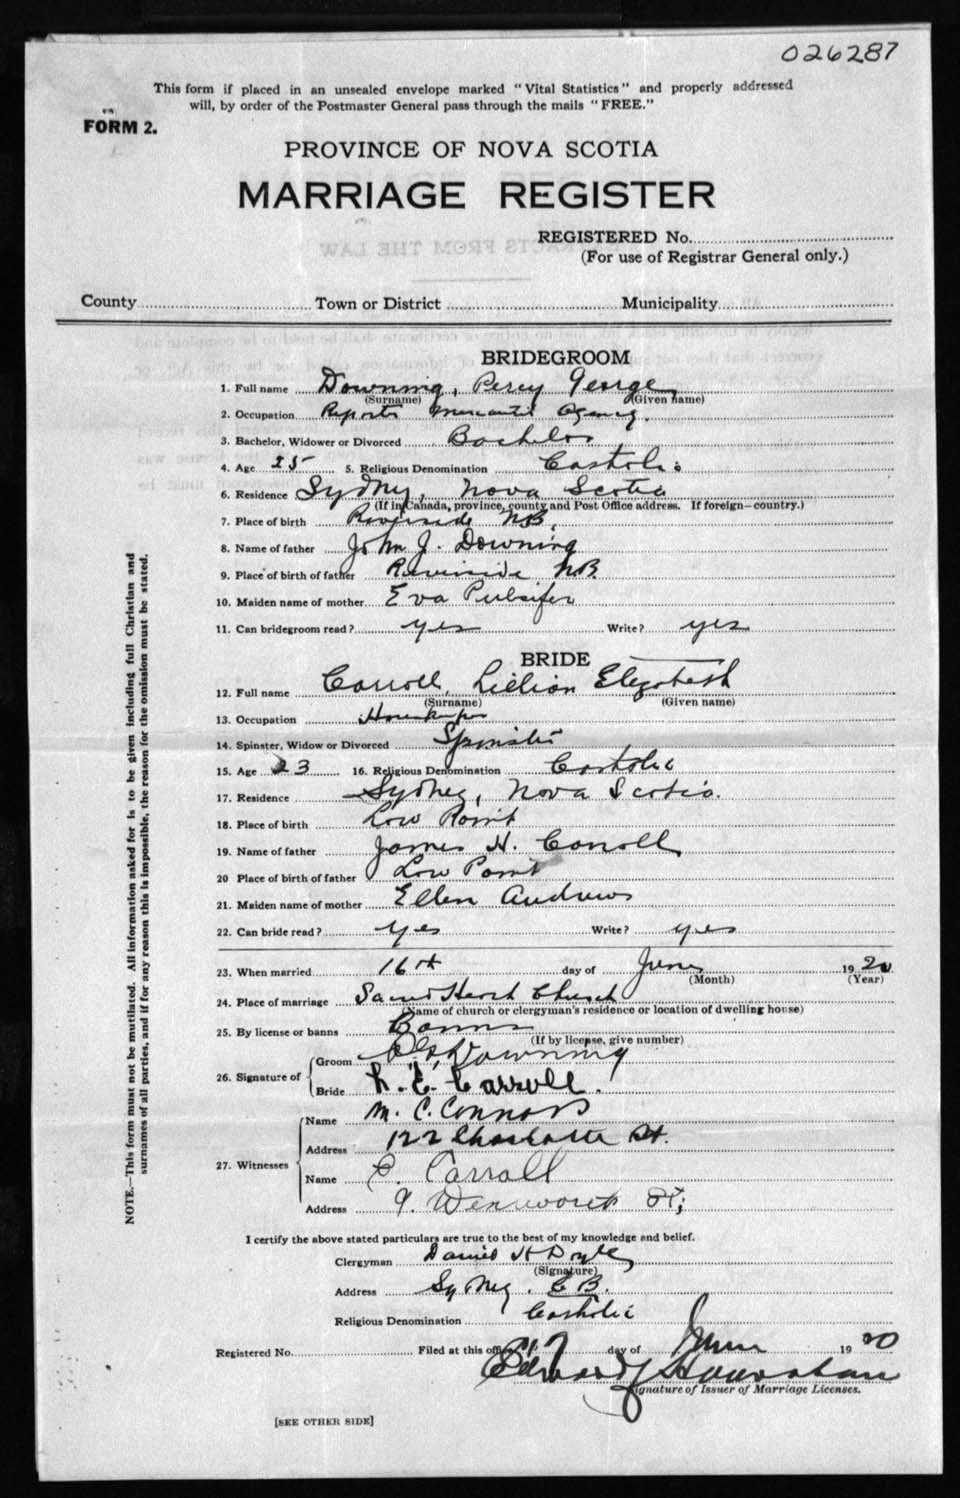 026287
This form if placed in an unsealed envelope marked "Vital Statistics" and properly addressed
will, by order of the Postmaster General pass through the mails "FREE."
FORM 2.
PROVINCE OF NOVA SCOTIA
MARRIAGE REGISTER
REGISTERED No.
(For use of Registrar General only.)
County Town or District Municipality
BRIDEGROOM
1. Full name Downing, Percy George
(Surname) (Given name)
2. Occupation Reporter Mercantile Agency.
3. Bachelor, Widower or Divorced Bachelor
4. Age 25 5. Religious Denomination Catholic
6. Residence Sydney, Nova Scotia
(If in Canada, province, county and Post Office address. If foreign—country.)
7. Place of birth Riverside NB.
8. Name of father John J. Downing
9. Place of birth of father Riverside NB.
10. Maiden name of mother Eva Pulsifer
11. Can bridegroom read? yes Write? yes
BRIDE
12. Full name Carroll, Lillian Elizabeth
(Surname) (Given name)
13. Occupation Housekeeper
14. Spinster, Widow or Divorced Spinster
15. Age 23 16. Religious Denomination Catholic
17. Residence Sydney, Nova Scotia.
18. Place of birth Low Point
19. Name of father James H. Carroll
20 Place of birth of father Low Point
21. Maiden name of mother Ellen Andrews
22. Can bride read? yes Write? yes
23. When married 16th day of June 1920
(Month) (Year)
24. Place of marriage Sacred Heart Church
(Name of church or clergyman's residence or location of dwelling house)
25. By license or banns Banns
(If by license, give number)
26. Signature of Groom Downing
Bride L. E. Carroll.
27. Witnesses Name M. C. Connors
Address 122 Charlotte St.
Name C. Carroll
Address 9 Wenworth St;
I certify the above stated particulars are true to the best of my knowledge and belief.
Clergyman Daniel H Doyle
(Signature)
Address Sydney. C B.
Religious Denomination Catholic
Registered No. Filed at this office day of June 1920
Edward
Signature of Issuer of Marriage Licenses.
[SEE OTHER SIDE]
NOTE.—This form must not be mutilated. All information asked for is to be given including full Christian and
surnames of all parties, and if for any reason this is impossible, the reason for the omission must be stated.